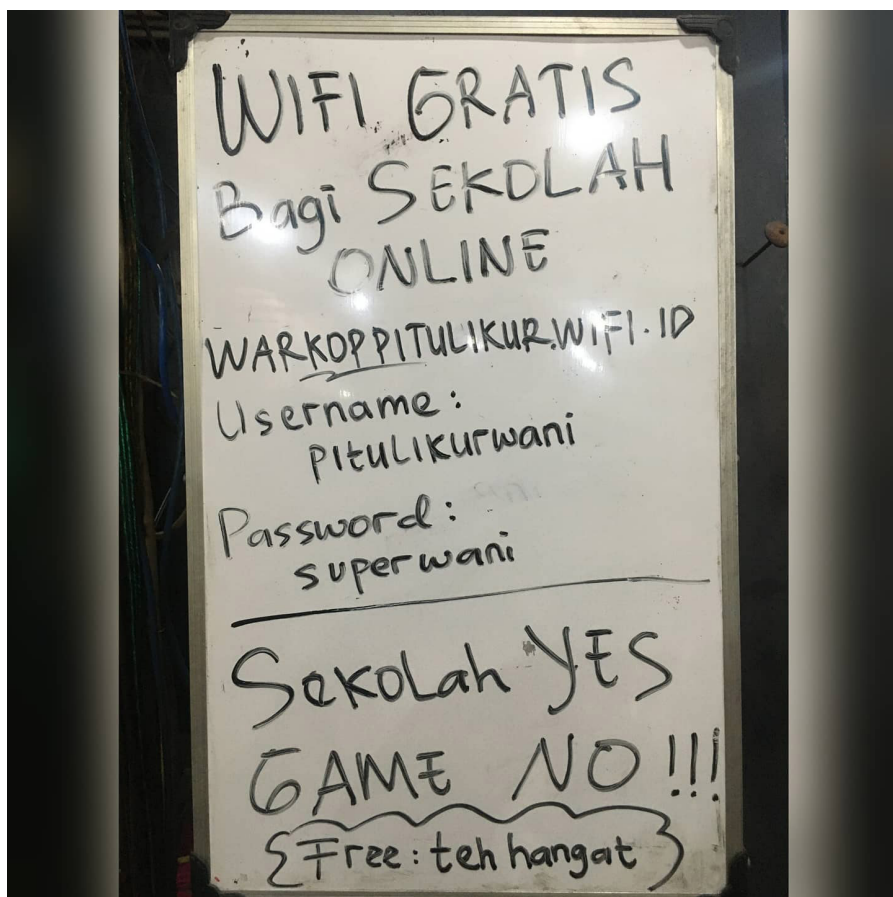 WIFI GRATIS
Bagi SEKOLAH
ONLINE
WARKOPPITULIKUR.WIFI.ID
Username:
PITULIKURwani
Password:
superwani
Sekolah YES
GAME NO!!!
{Free: teh hangat}